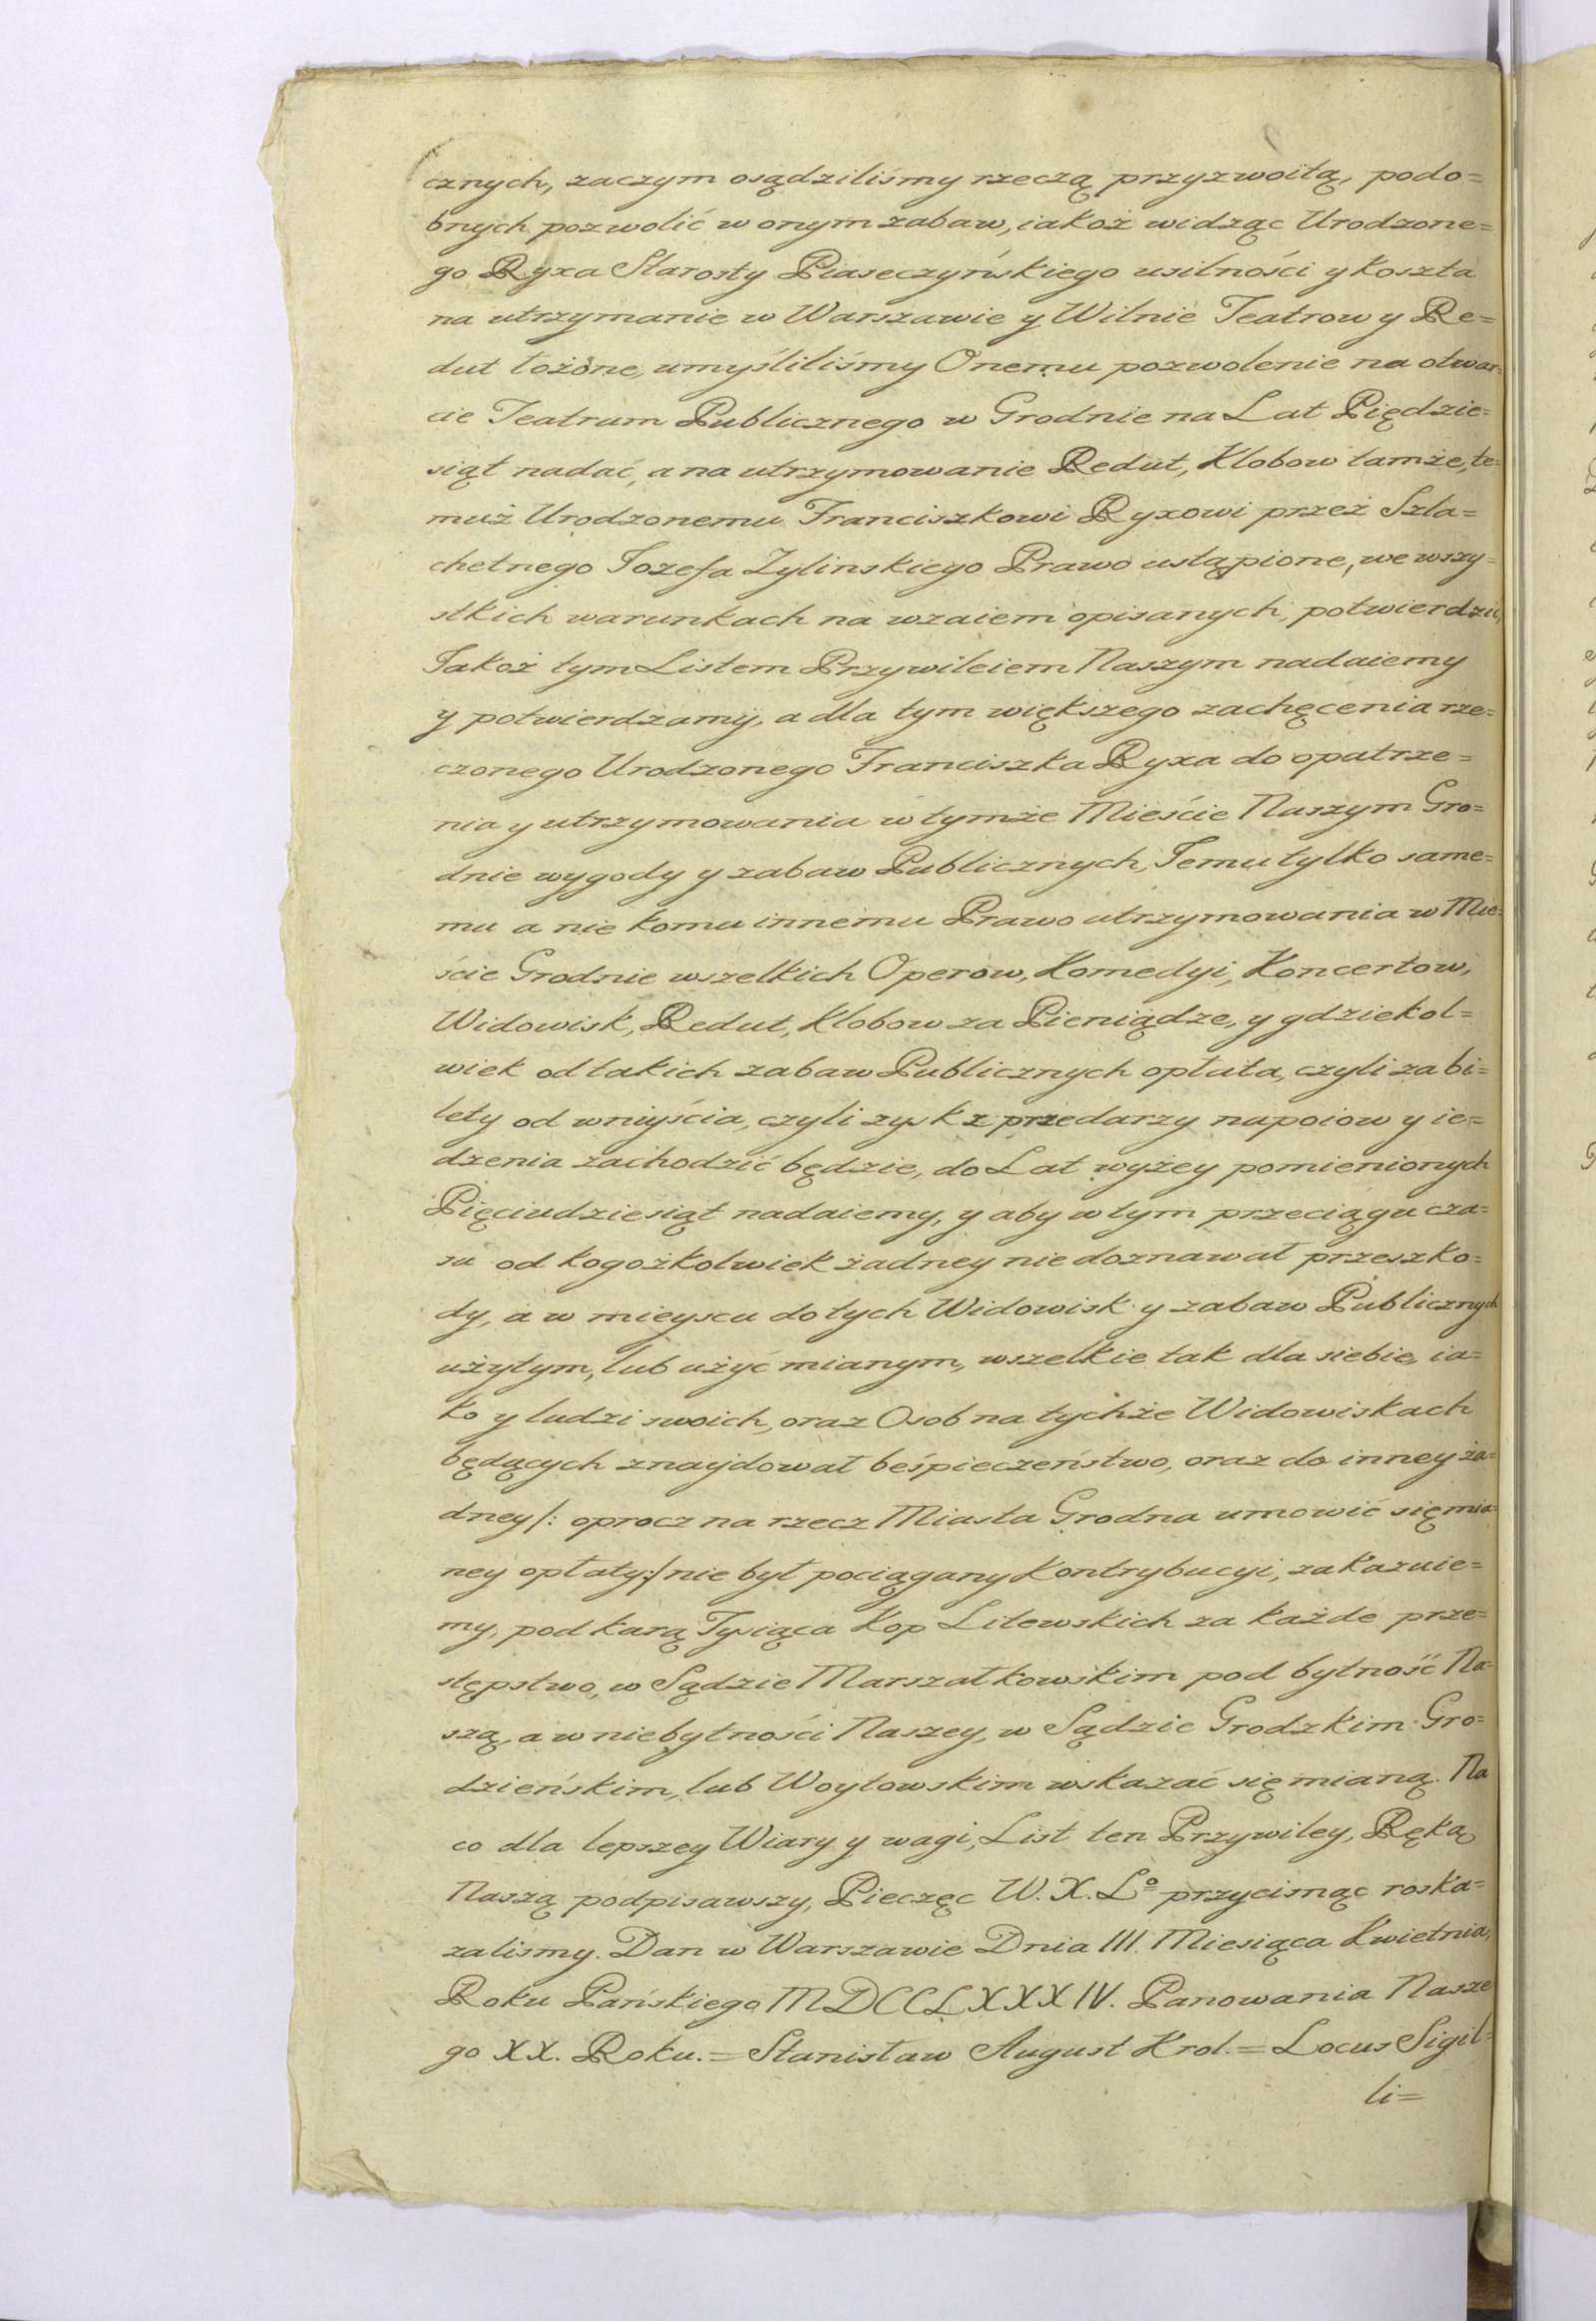 cznych, zaczym osądziliśmy rzeczą przyzwoitą, podo=
bnych pozwolić w onym zabaw, iakoż widząc Urodzone=
go Ryxa Starosty Piaseczyńskiego usilności y koszta
na utrzymanie w Warszawie y Wilnie Teatrow y Re=
dut łożone, umyśliliśmy Onemu pozwolenie na otwar=
cie Teatrum Publicznego w Grodnie na Lat Pięćdzie=
siąt nadać, a na utrzymowanie Redut, Klobow tamże, te=
muż Urodzonemu Franciszkowi Ryxowi przez Szla=
chetnego Jozefa Zylinskiego Prawo ustąpione, we wszy=
stkich warunkach na wzaiem opisanych, potwierdzić,
Jakoż tym Listem Przywileiem Naszym nadaiemy
y potwierdzamy, a dla tym większego zachęcenia rze=
czonego Urodzonego Franciszka Ryxa do opatrze=
nia y utrzymowania w tymże Mieście Naszym Gro=
dnie wygody y zabaw Publicznych, Temu tylko same=
mu a nie komu innemu Prawo utrzymowania w Mie=
ście Grodnie wszelkich Operow, Komedyi, Koncertow,
Widowisk, Redut, Klobow za Pieniądze, y gdziekol=
wiek od takich zabaw Publicznych opłata, czyli za bi=
lety od wniyścia, czyli zysk z przedarzy napoiow y ie=
dzenia zachodzić będzie, do Lat wyżey pomienionych
Pięciudziesiąt nadaiemy, y aby w tym przeciągu cza=
su od kogożkolwiek żadney nie doznawał przeszko=
dy, a w mieyscu do tych Widowisk y zabaw Publicznych
użytym, lub użyć mianym, wszelkie tak dla siebie, ia=
ko y ludzi swoich, oraz Osob na tychże Widowiskach
będących znayjdował beśpieczeństwo, oraz do inney ża=
dney /: oprocz na rzecz Miasta Grodna umowić się mia=
ney opłaty :/ nie był pociągany Kontrybucyi, zakazuie=
my, pod karą Tysiąca Kop Litewskich za każde prze=
stępstwo, w Sądzie Marszałkowskim pod bytność Na=
szą, a w niebytności Naszey, w Sądzie Grodzkim Gro=
dzieńskim, lub Woytowskim wskazać się mianą. Na
co dla lepszey Wiary y wagi, List ten Przywiley, Ręką
Naszą podpisawszy, Pieczęc W. X. Lº przycisnąc roska=
zalismy. Dan w Warszawie Dnia III. Miesiąca Kwietnia,
Roku Pańskiego MDCCLXXXIV. Panowania Nasze
go XX. Roku. = Stanisław August Krol. = Locus Sigil=
li=